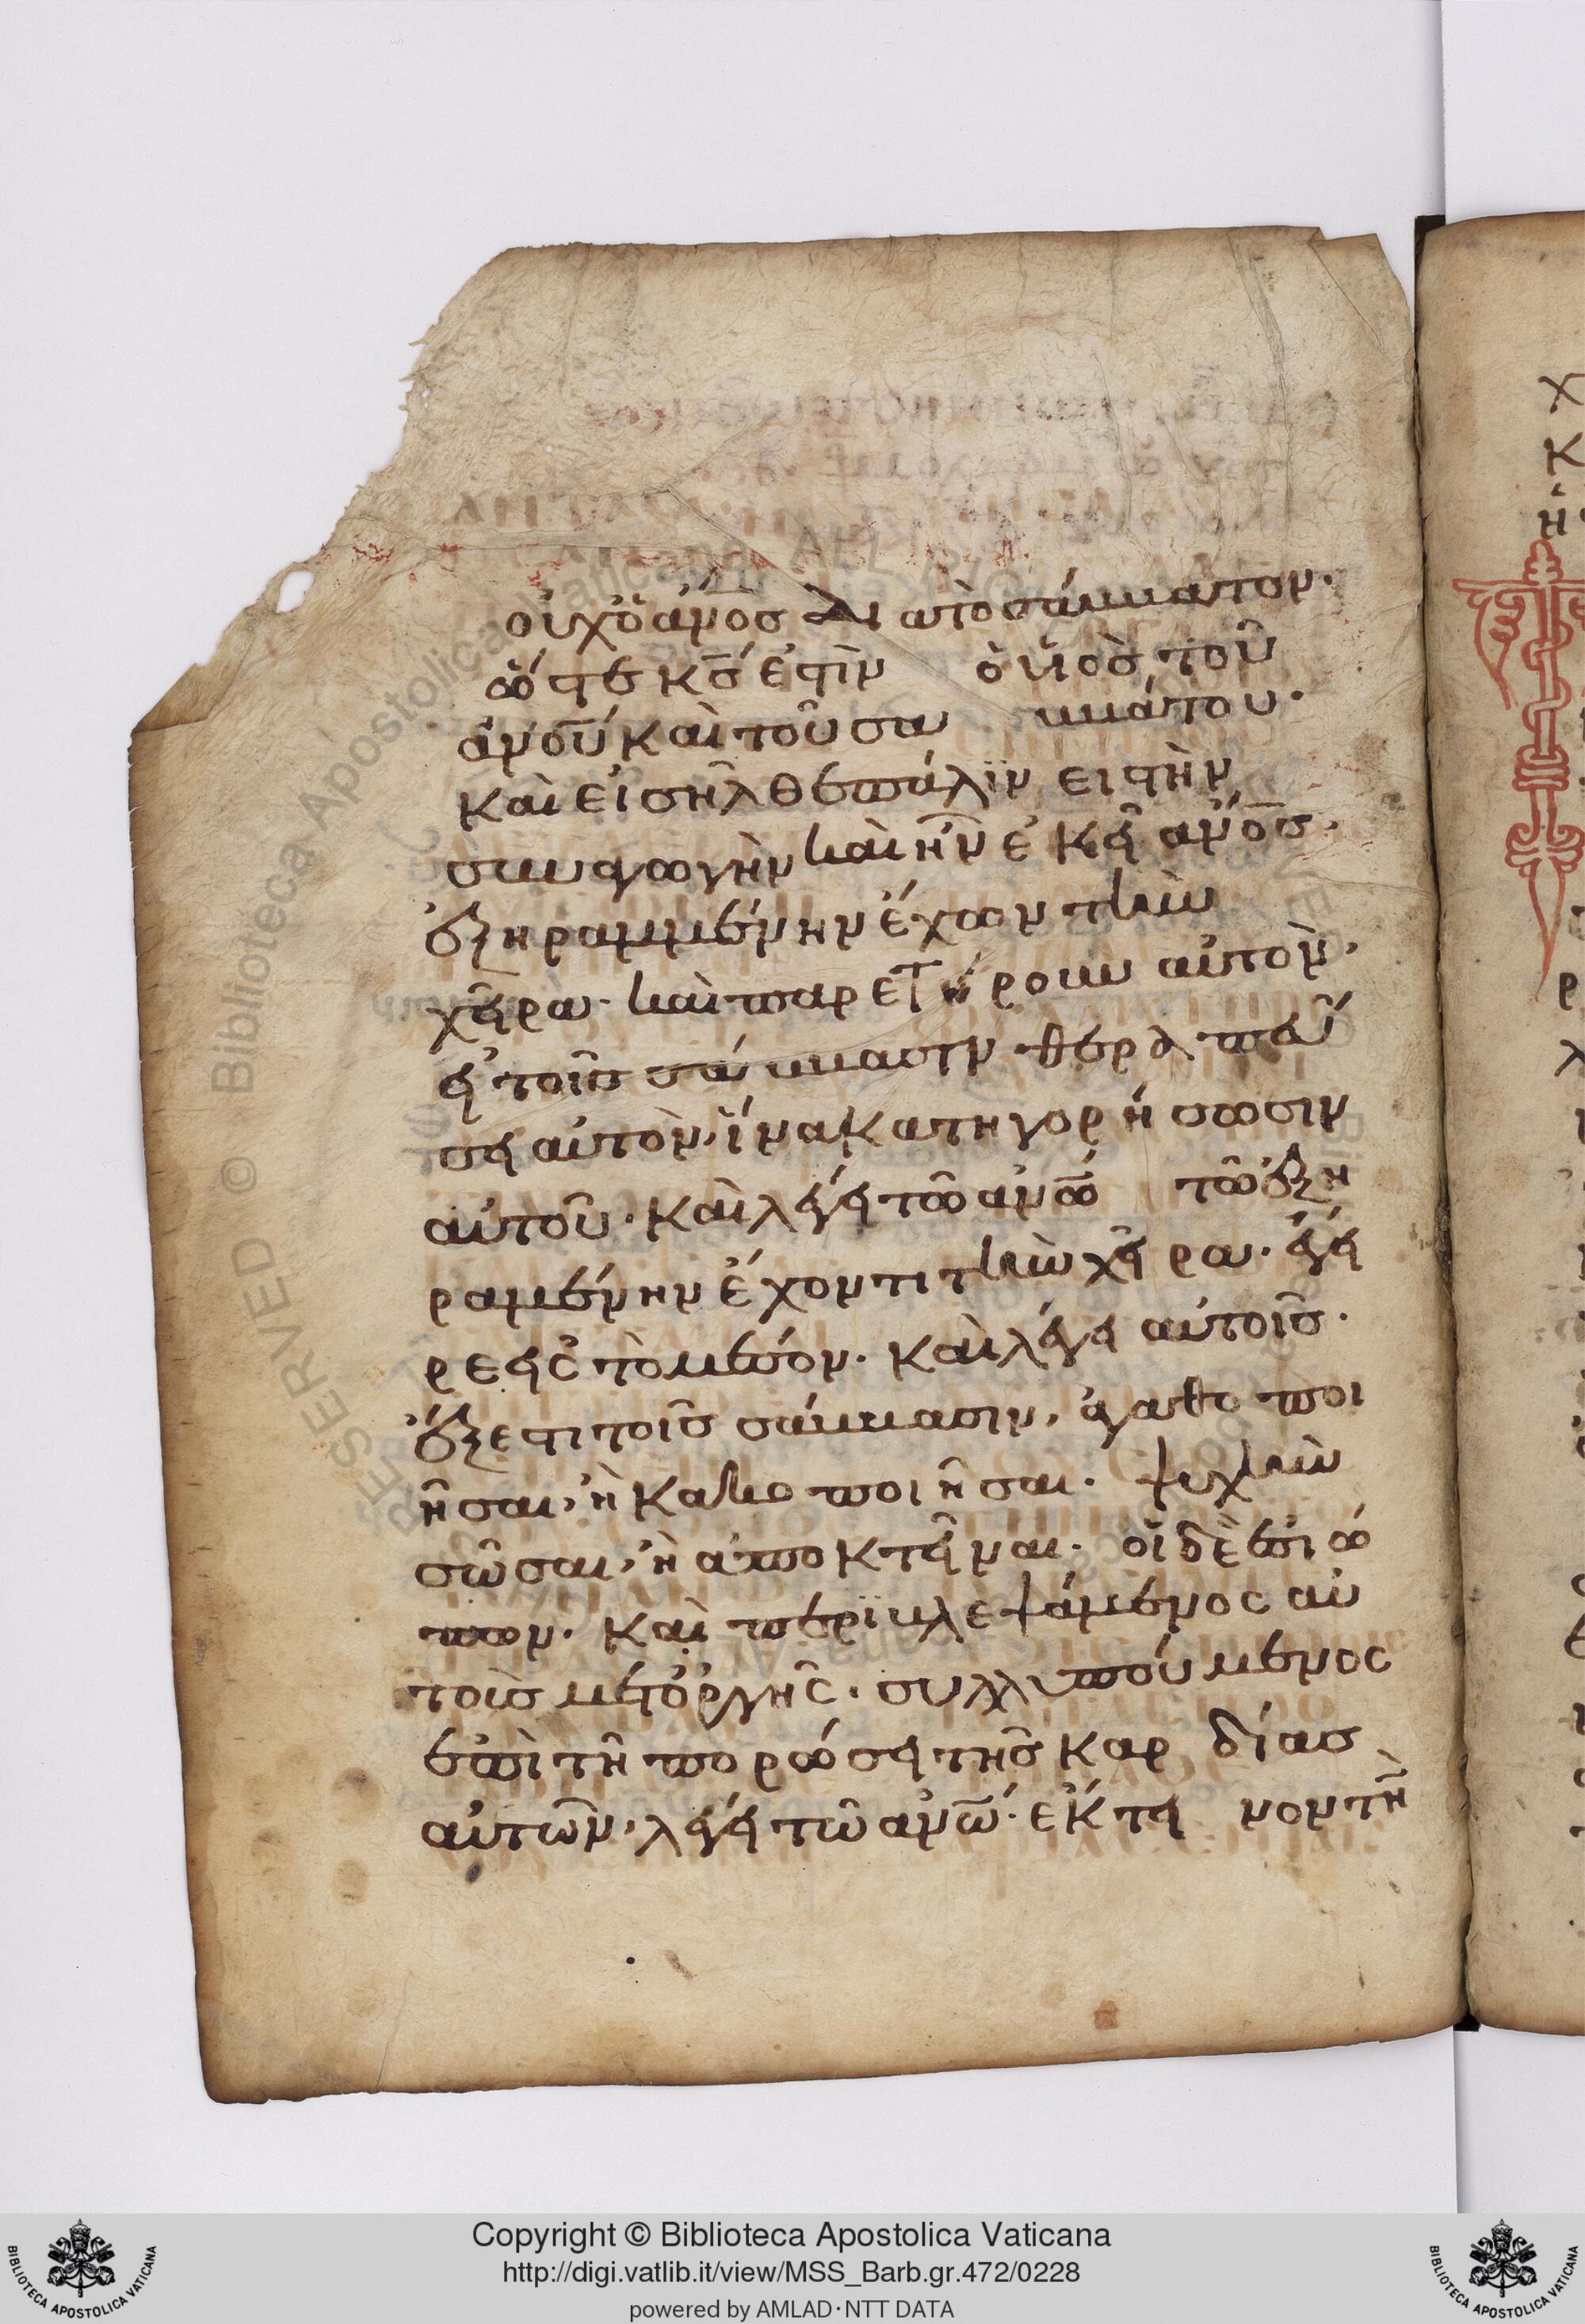 οὐχ ὁ ἄνος δι α τὸ σάββατον·
ὥστε κς ἐστὶν ὁ υἱὸς τοῦ
ἀνου καὶ τοῦ σα ββάτου·
καὶ εἰσῆλθε πάλιν εισ τὴν
συναγωγὴν καὶ ἦν ἐκεῖ ανος·
ἐξηραμμένην ἔχων τὴν
χεῖρα· καὶ παρετήρουν αὐτὸν·
εἰ τοῖς σάββασιν θεραπεύ
σει αὐτὸν, ἵνα κατηγορήσωσιν
αὐτοῦ· καὶ λέγει τῶ ανω τῶ ἐξη
ραμένην ἔχοντι τὴν χεῖρα· ἔγει
ρε εἰς τὸ μέσον· καὶ λέγει αὐτοῖς·
ἔξεστι τοῖς σάββασιν, ἀγαθοποι
ῆσαι, ἢ κακοποιῆσαι· ψυχὴν
σῶσαι, ἢ αποκτεῖναι· οἱ δὲ ἐσιώ
πων· καὶ περιβλεψάμενος αὐ
τοὺς μετ ὀργῆς· συλλυπούμενος
ἐπὶ τῆ πορώσει τῆς καρδίας
αὐτῶν· λέγει τῶ ανω· ἔκτεινον τὴν
Copyright © Biblioteca Apostolica Vaticana
http://digi.vatlib.it/view/MSS_Barb.gr.472/0228
powered by AMLAD·NTT DATA
BIBLIOTECA APOSTOLICA VATICANA
BIBLIOTECA APOSTOLICA VATICANA